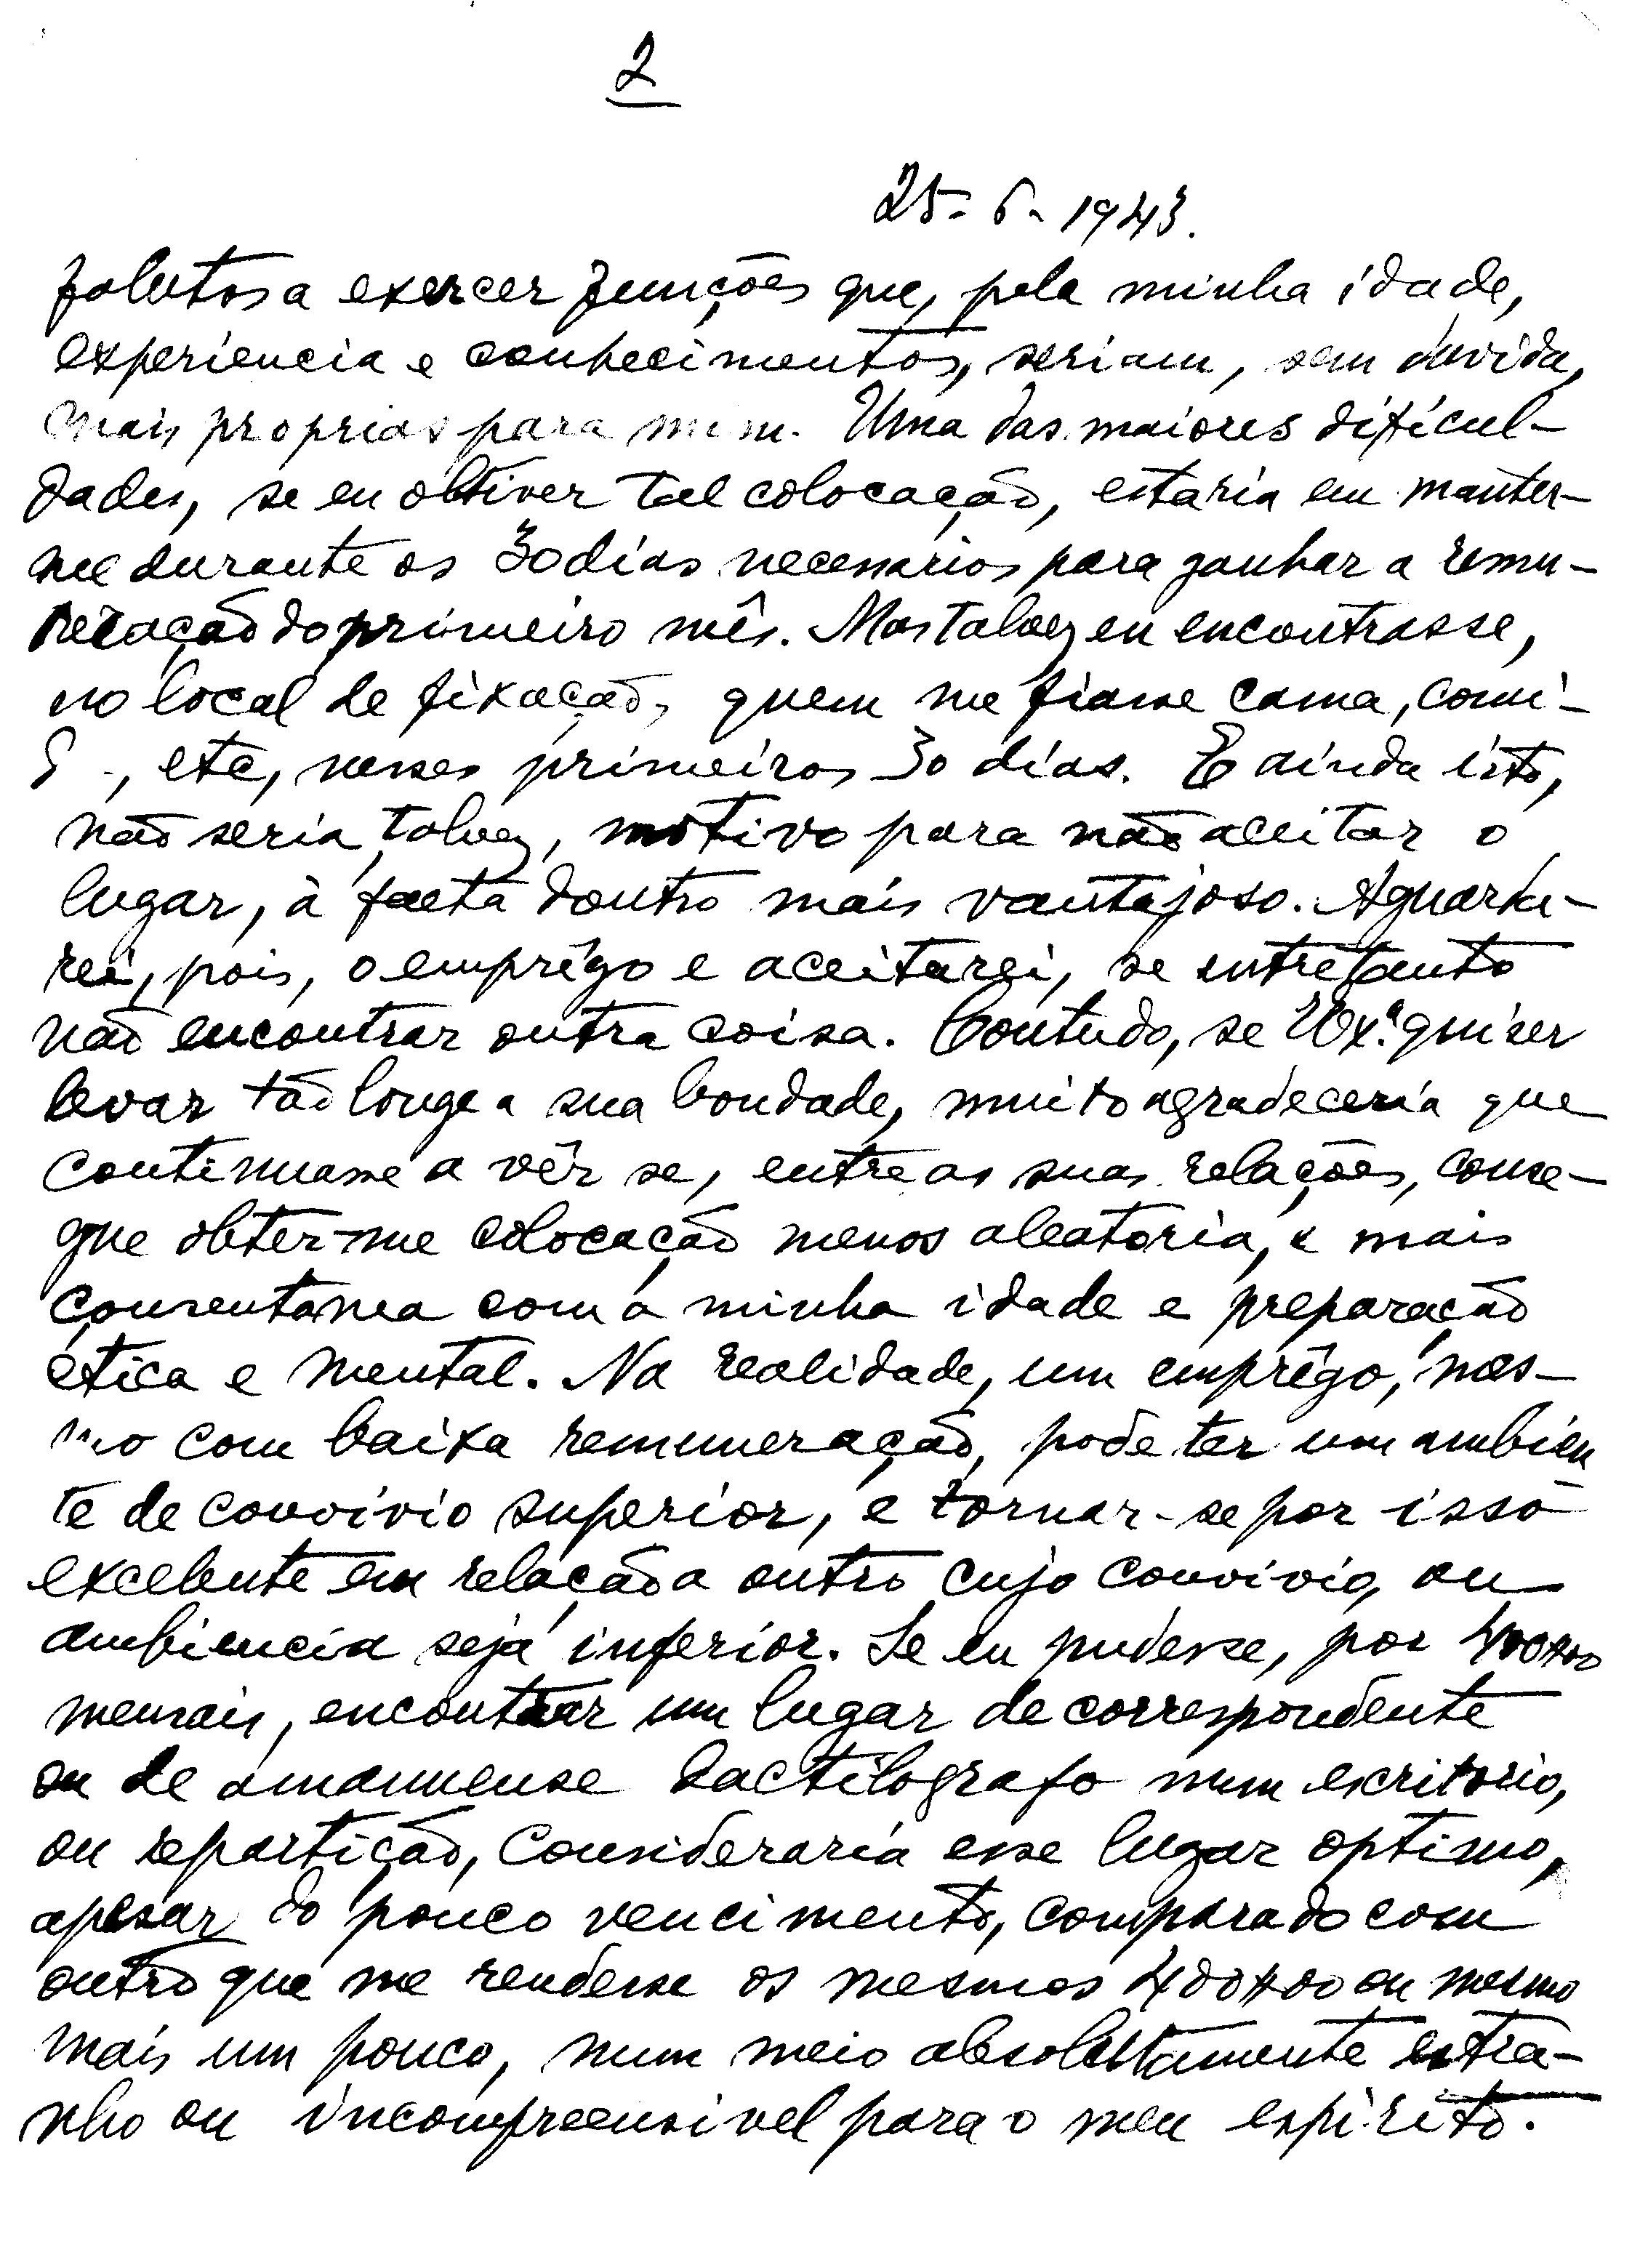 2
25-6-1943.
a exercer funções que, pela minha idade,
experiencia e conhecimentos, seriam, sem duvida,
mais proprias para mim. Uma das maiores dificul-
dades, se eu obtiver tal colocação, estaria em manter-
me durante os 30 dias necessarios para ganhar a remu-
neração do primeiro mês. Mas talvez eu encontrasse,
no local de fixação, quem me fiasse cama, comi-
, etc, nesses primeiros 30 dias. E ainda isto,
não seria, talvez, motivo para não aceitar o
lugar, à falta doutro mais vantajoso. Aguarda-
rei, pois, o emprêgo e aceitarei, se entretanto
não encontrar outra coisa. Contudo, se V. Ex.ª quiser
levar tão longe a sua bondade, muito agradeceria que
continuasse a vêr se, entre as suas relações, conse-
gue obter-me colocação menos aleatoria, e mais
consentanea com a minha idade e preparação
etica e mental. Na realidade, um emprêgo, mes-
mo com baixa remuneração, pode ter um ambien
te de convivio superior, e tornar-se por isso
excelente em relação a outro cujo convivio, ou
ambiencia seja inferior. Se eu pudesse, por 400$00
mensais, encontrar um lugar de correspondente
ou de amanuense dactilografo num escritorio,
ou repartição, consideraria esse lugar optimo,
apesar do pouco vencimento, comparado com
outro que me rendesse os mesmos 400$00 ou mesmo
mais um pouco, num meio absolutamente estra-
nho ou incompreensivel para o meu espirito.